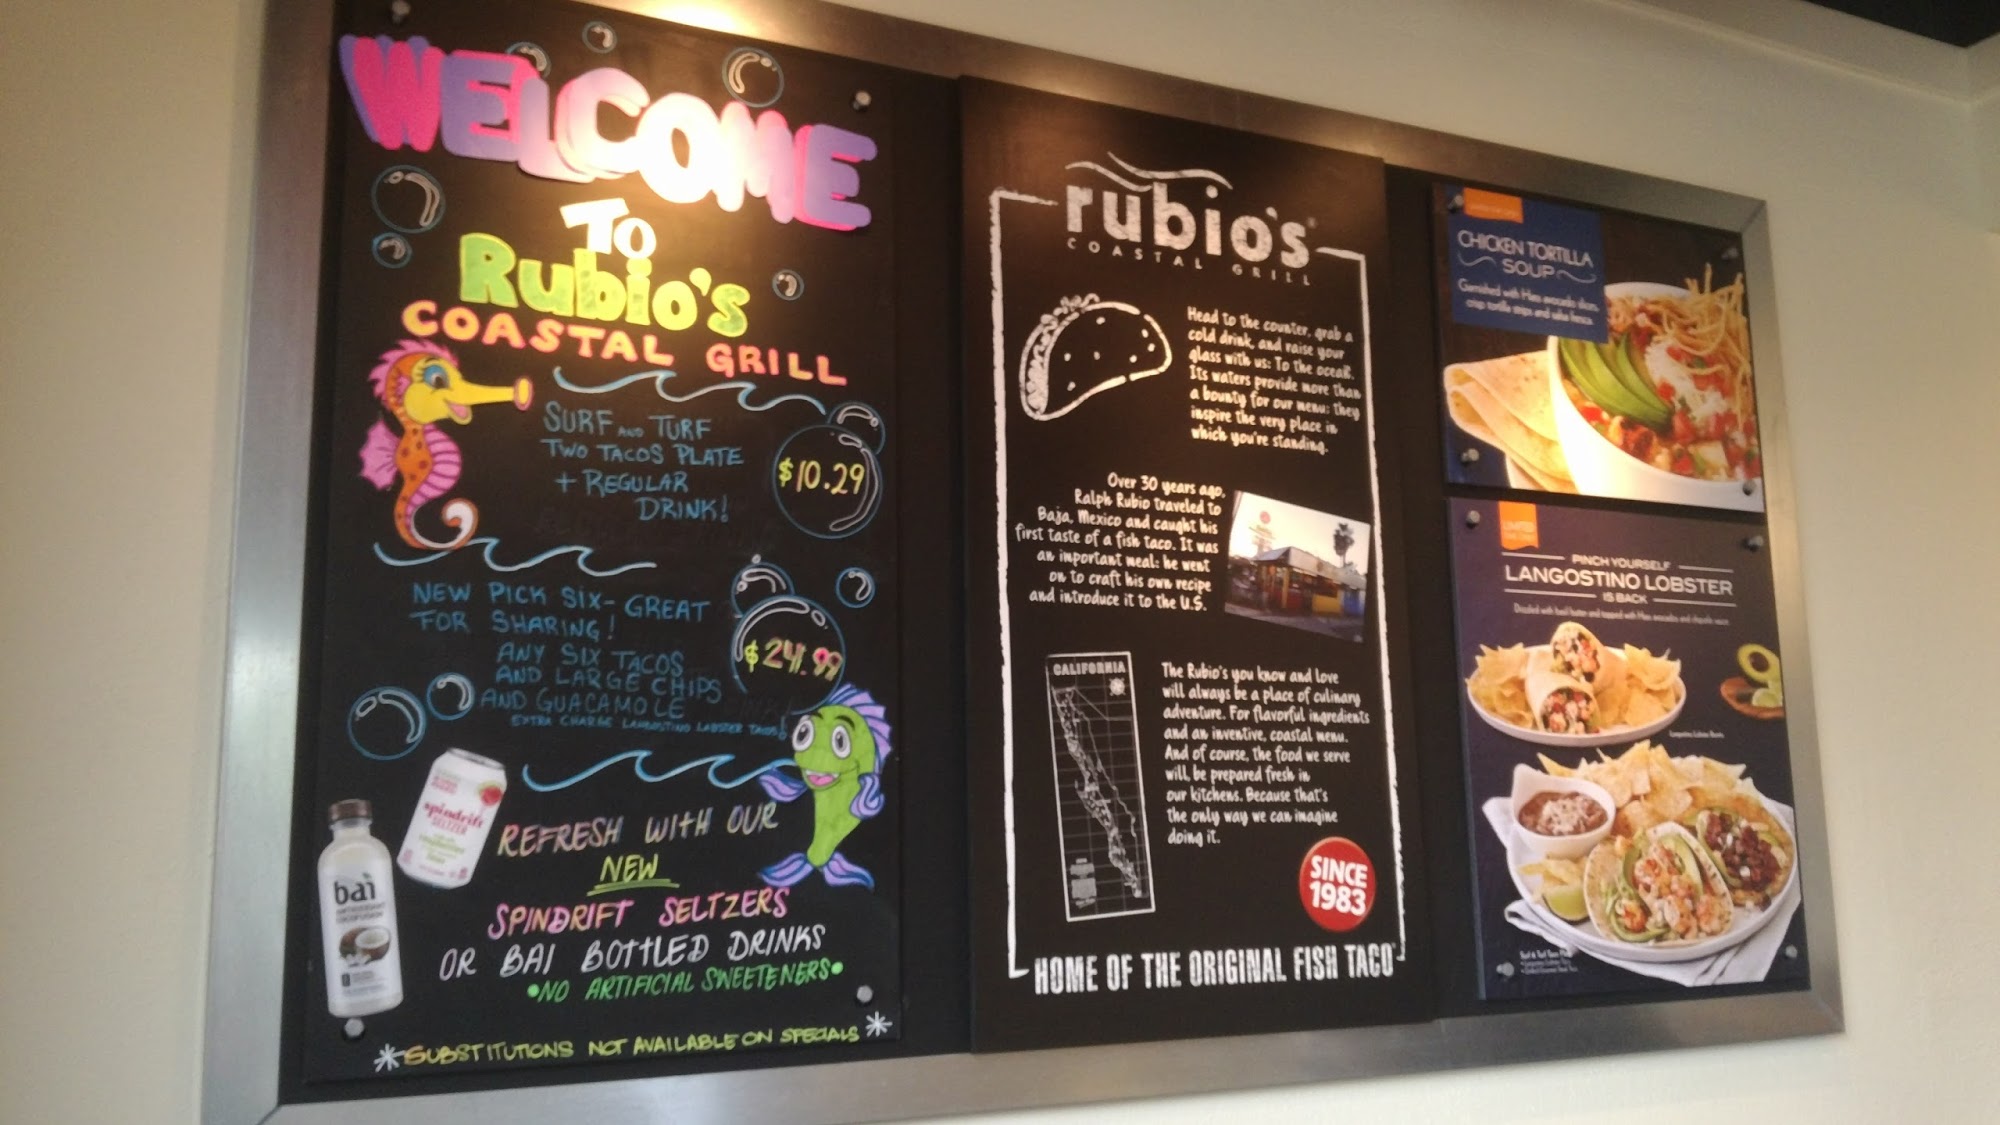 WELCOME
TO
RUBIO'S
COASTAL GRILL
SURF AND TURF
TWO TACOS PLATE
+ REGULAR
DRINK!
$10.29
NEW PICK SIX- GREAT
FOR SHARING!
ANY SIX TACOS
AND LARGE CHIPS
AND GUACAMOLE
EXTRA CHARGE LANGOSTINO LOBSTER TACOS!
$24.99
spindrift
SELTZER
bai
REFRESH WITH OUR
NEW
SPINDRIFT SELTZERS
OR BAI BOTTLED DRINKS
•NO ARTIFICIAL SWEETENERS•
*SUBSTITUTIONS NOT AVAILABLE ON SPECIALS*
rubio's
COASTAL GRILL
Head to the counter, grab a
cold drink, and raise your
glass with us: To the ocean.
Its waters provide more than
a bounty for our menu: they
inspire the very place in
which you're standing.
Over 30 years ago,
Ralph Rubio traveled to
Baja, Mexico and caught his
first taste of a fish taco. It was
an important meal: he went
on to craft his own recipe
and introduce it to the U.S.
CALIFORNIA
The Rubio's you know and love
will always be a place of culinary
adventure. For flavorful ingredients
and an inventive, coastal menu.
And of course, the food we serve
will be prepared fresh in
our kitchens. Because that's
the only way we can imagine
doing it.
SINCE
1983
HOME OF THE ORIGINAL FISH TACO®
CHICKEN TORTILLA
SOUP
Garnished with Hass avocado slices,
crisp tortilla strips and salsa fresca.
LIMITED
PINCH YOURSELF
LANGOSTINO LOBSTER
IS BACK
Drizzled with basil butter and topped with Hass avocados and chipotle sauce
Langostino Lobster Burrito